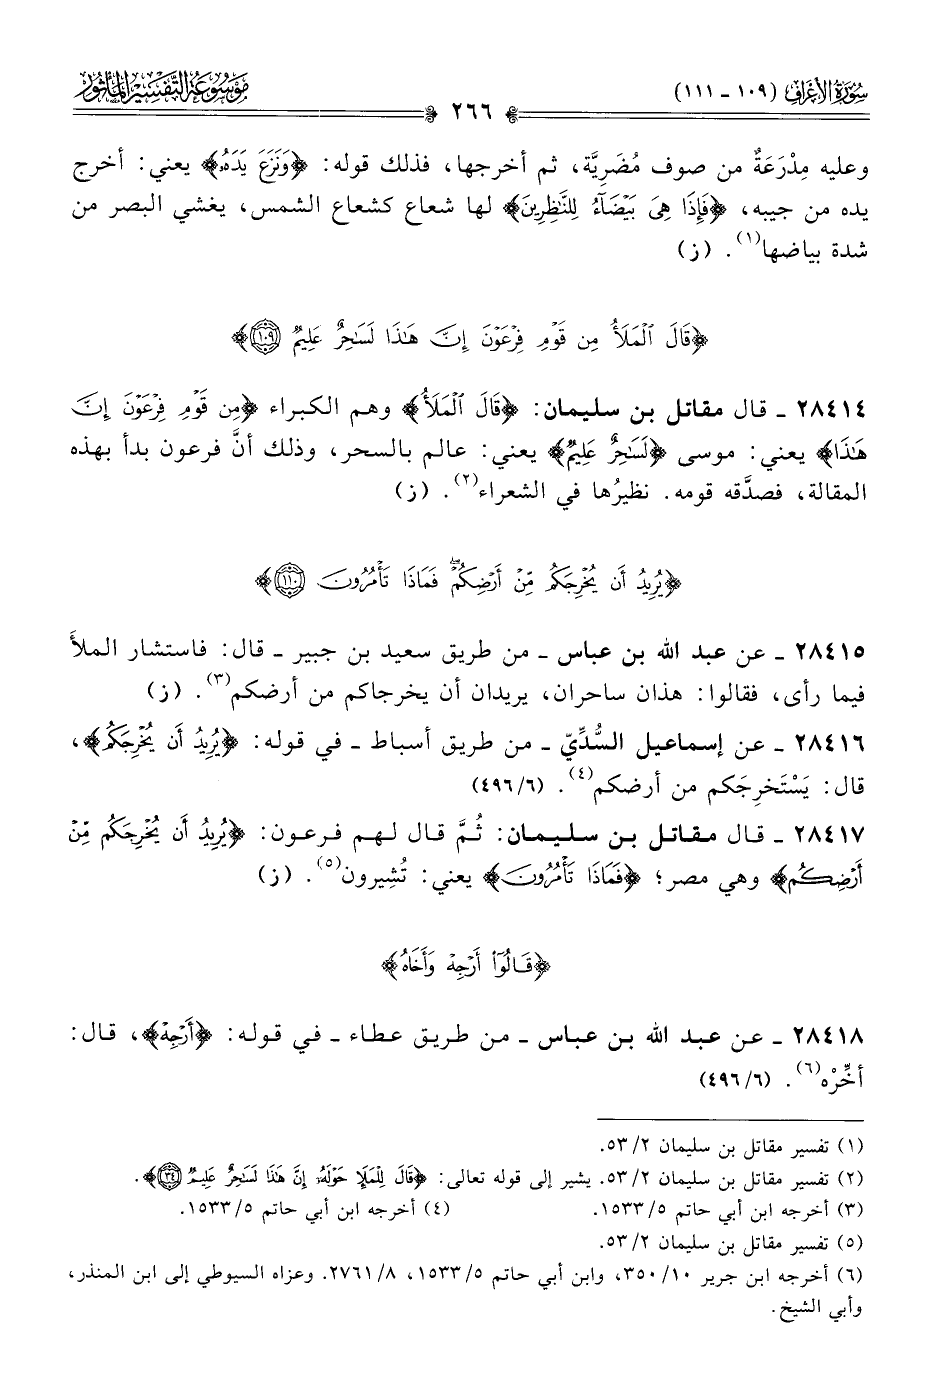 سُورَةُ الأَعْرَافِ (١٠٩ - ١١١)
٢٦٦
مَوْسُوعَة التَّفْسِيرِ المَأْثُور
وعليه مِدْرَعَةٌ من صوف مُضَرِيَّة، ثم أخرجها، فذلك قوله: ﴿وَنَزَعَ يَدَهُۥ﴾ يعني: أخرج
يده من جيبه، ﴿فَإِذَا هِىَ بَيْضَآءُ لِلنَّٰظِرِينَ﴾ لها شعاع كشعاع الشمس، يغشي البصر من
شدة بياضها(١). (ز)
﴿قَالَ ٱلْمَلَأُ مِن قَوْمِ فِرْعَوْنَ إِنَّ هَٰذَا لَسَٰحِرٌ عَلِيمٌ ١٠٩﴾
٢٨٤١٤ - قال مقاتل بن سليمان: ﴿قَالَ ٱلْمَلَأُ﴾ وهم الكبراء ﴿مِن قَوْمِ فِرْعَوْنَ إِنَّ
هَٰذَا﴾ يعني: موسى ﴿لَسَٰحِرٌ عَلِيمٌ﴾ يعني: عالم بالسحر، وذلك أنَّ فرعون بدأ بهذه
المقالة، فصدَّقه قومه. نظيرُها في الشعراء(٢). (ز)
﴿يُرِيدُ أَن يُخْرِجَكُم مِّنْ أَرْضِكُمْۖ فَمَاذَا تَأْمُرُونَ ١١٠﴾
٢٨٤١٥ - عن عبد الله بن عباس - من طريق سعيد بن جبير - قال: فاستشار الملأ
فيما رأى، فقالوا: هذان ساحران، يريدان أن يخرجاكم من أرضكم(٣). (ز)
٢٨٤١٦ - عن إسماعيل السُّدِّيّ - من طريق أسباط - في قوله: ﴿يُرِيدُ أَن يُخْرِجَكُم﴾،
قال: يَسْتَخرِجَكم من أرضكم(٤). (٦/ ٤٩٦)
٢٨٤١٧ - قال مقاتل بن سليمان: ثُمَّ قال لهم فرعون: ﴿يُرِيدُ أَن يُخْرِجَكُم مِّنْ
أَرْضِكُم﴾ وهي مصر؛ ﴿فَمَاذَا تَأْمُرُونَ﴾ يعني: تُشِيرون(٥). (ز)
﴿قَالُوٓا۟ أَرْجِهْ وَأَخَاهُ﴾
٢٨٤١٨ - عن عبد الله بن عباس - من طريق عطاء - في قوله: ﴿أَرْجِهْ﴾، قال:
أخِّرْه(٦). (٦/ ٤٩٦)
(١) تفسير مقاتل بن سليمان ٢/ ٥٣.
(٢) تفسير مقاتل بن سليمان ٢/ ٥٣. يشير إلى قوله تعالى: ﴿قَالَ لِلْمَلَإِ حَوْلَهُۥٓ إِنَّ هَٰذَا لَسَٰحِرٌ عَلِيمٌ ٣٤﴾.
(٣) أخرجه ابن أبي حاتم ٥/ ١٥٣٣. (٤) أخرجه ابن أبي حاتم ٥/ ١٥٣٣.
(٥) تفسير مقاتل بن سليمان ٢/ ٥٣.
(٦) أخرجه ابن جرير ١٠/ ٣٥٠، وابن أبي حاتم ٥/ ١٥٣٣، ٨/ ٢٧٦١. وعزاه السيوطي إلى ابن المنذر،
وأبي الشيخ.